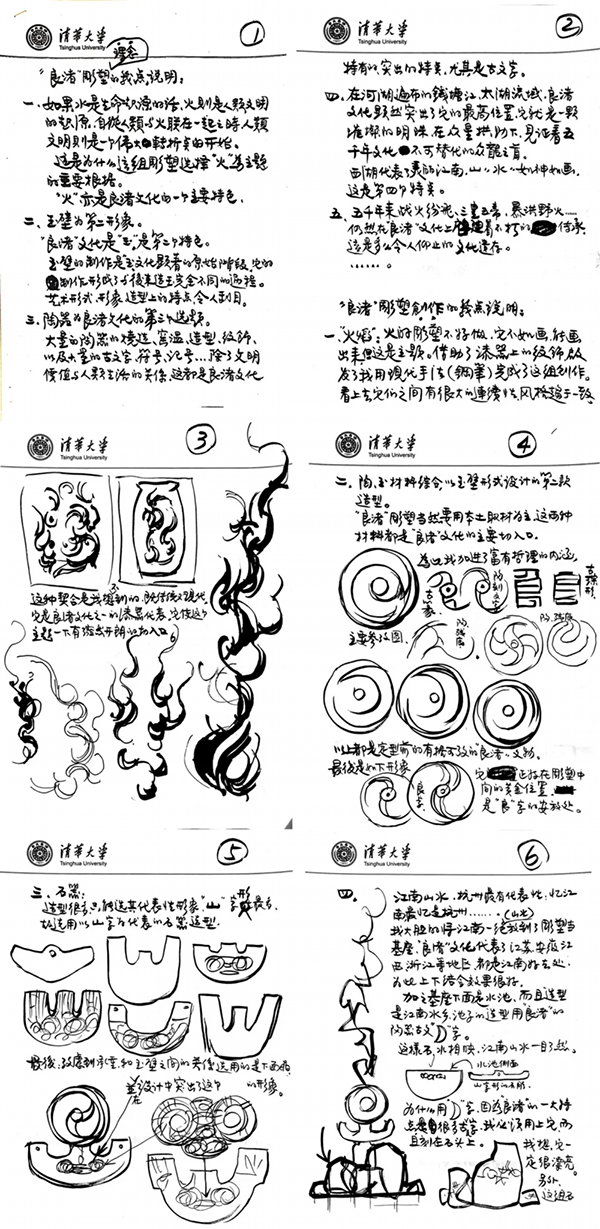 清华大学
Tsinghua University
1
理念
"良渚"雕塑的几点说明：
一、如果水是生命起源的话，火则是人类文明
的起源，自从人类与火联在一起之时人类
文明则是一个伟大转折点的开始。
这是为什么这组雕塑选择"火"为主题
的重要根据。
"火"亦是良渚文化的一个主要特色。
二、玉璧为第二形象。
"良渚"文化是"玉"是第二个特色。
玉璧的制作是玉文化显著的原始阶段，它的
制作形成了后来造玉完全不同的过程。
艺术形式，形象，造型上的特点，令人刮目。
三、陶器为良渚文化的第三个选题。
大量的陶器的烧造，窑温，造型，纹饰，
以及大量的古文字，符号，记号...除了文明
价值与人类生活的关系，这都是良渚文化
清华大学
Tsinghua University
2
特有的，突出的特点，尤其是古文字。
四、在河湖遍布的钱塘江，太湖流域，良渚
文化显然突出了它的最高位置，它就是一颗
璀璨的明珠，在众星拱助下，见证着五
千年文化不可替代的众龍之首。
西湖代表了美丽江南，山"水"如神如画，
这是第四个特点。
五、五千年来战火纷飞，三皇五帝，暴洪野火......
仍然在"良渚"文化上不朽的传承
这是多么令人仰止的文化遗存。
......。
"良渚"雕塑创作的几点说明：
一、"火焰"：火的雕塑不好做，它不如画，能画
出来但这是主题。借助了漆器上的纹饰启
发了我用现代手法（钢筆）完成了这组创作。
看上去它们之间有很大的連续性，风格趋于一致
清华大学
Tsinghua University
3
这种契合是我想到的，既传统又现代，
它是良渚文化之一的漆器代表，它使这个
主题一下有豁然开朗的切入口
清华大学
Tsinghua University
4
二、陶、玉材料结合，以玉璧形式设计的第二款
造型。
"良渚"雕塑当然要用本土取材为主，这两种
材料都是"良渚"文化的主要切入口。
為此我加进了富有哲理的内涵，
主要参考图
以上都是定型前的有据可考的"良渚"文物。
最後是如下形象
良字
它正好在雕塑中
间的黄金位置，
是"良"字的安放处。
清华大学
Tsinghua University
5
三、石器：
造型很多，只能选其代表性形象，"山"字形最多，
故选用以山字为代表的石器造型。
最後，考慮到承重，和玉璧之间的关係，选用的是下面形
在设计中突出了这个 的形象。
清华大学
Tsinghua University
6
四、
江南山水，杭州最有代表性：忆江
南最忆是杭州......（山水）
我大胆的将江南一绝放到了雕塑当
基座，"良渚"文化代表了江苏，安徽，江
西，浙江等地区，都是江南好去处，
为此上下结合效果很好。
加之基座下面是水池，而且造型
是江南水乡，池子的造型用"良渚"的
陶器古文"D"字。
这样石，水相映，江南山水一目了然。
水池侧面
山字形的石形
为什么用"D"字，因为"良渚"的一大特
点是很多古字，我必须用上它，而
且刻在石头上。
我想，它一
定很漂亮。
另外，
这组石